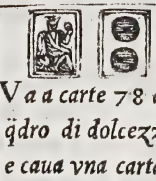 Va a carte 78
q̃dro di dolcezz
e caua vna carta